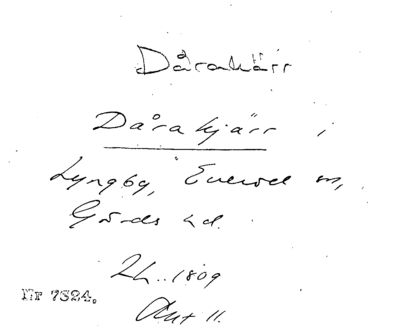 Dårakärr
Dårakjärr i
Lyngby, Everöd sn,
Gärds hd.
Lh. 1809
Akt 11.
Nr 7324.